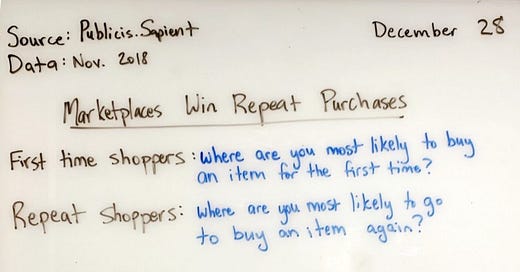 Source: Publicis.Sapient
December 28
Data: Nov. 2018
Marketplaces Win Repeat Purchases
First time shoppers: where are you most likely to buy
an item for the first time?
Repeat Shoppers: where are you most likely to go
to buy an item again?